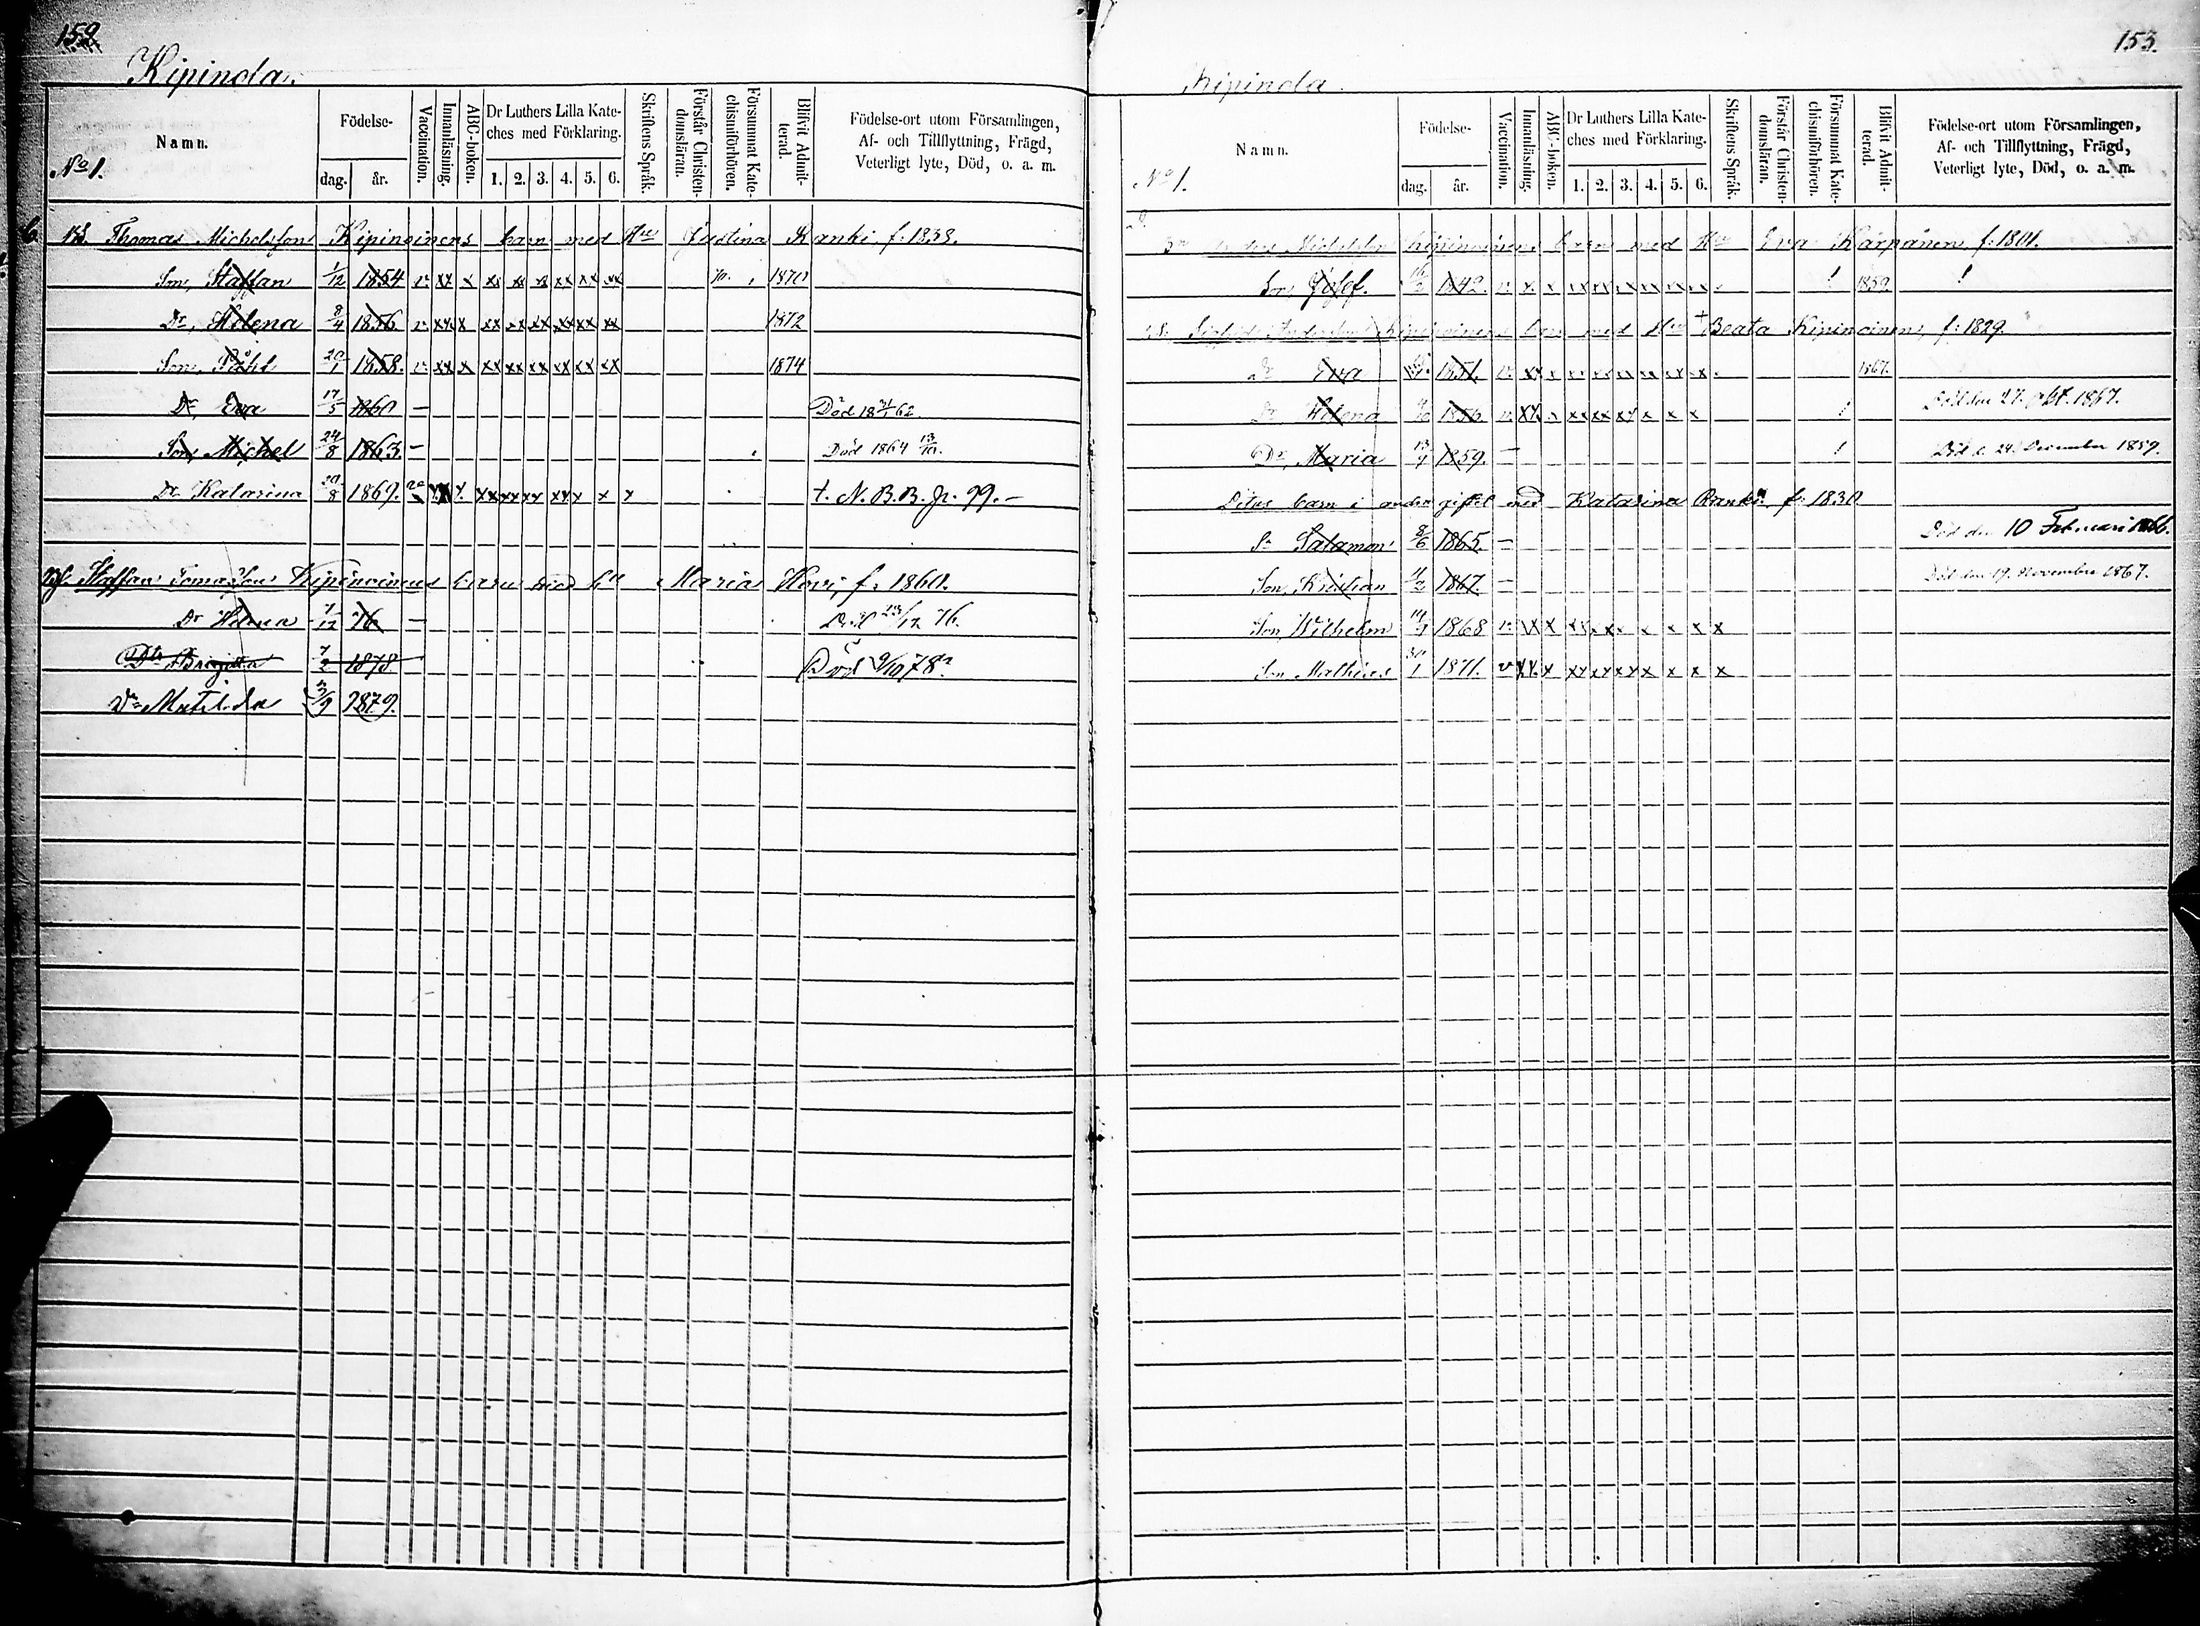 152
Kipinola.
Namn.
No 1.
Födelse-
dag.
år.
Vaccination.
Innanläsning.
ABC-boken.
Dr Luthers Lilla Kate-
ches med Förklaring.
1. 2. 3. 4. 5. 6.
Skriftens Språk.
Förstår Christen-
domsläran.
Försummat Kate-
chismiförhören.
Blifvit Admit-
terad.
Födelse-ort utom Församlingen,
Af- och Tillflyttning, Frägd,
Veterligt lyte, Död, o. a. m.
6. Thomas Michelsson Kipinoinens barn med Hu Justina Ranki f. 1833.
Son, Staffan 1/12 1854 v. xx x xx xx xx xx xx xx 1870
Dr, Helena 8/4 1856 v. xx x xx xx xx xx xx xx 1872
Son, Påhl 20/1 1858. v. xx x xx xx xx xx xx xx 1874
Dr, Eva 17/5 1860 — Död 18 62
Son, Michel 24/8 1863. — Död 1864 13/10.
Dr Katarina 1869. xx xx xx xx x x t. N. B. B. p. 99. —
Staffan Tomasson Kipinoinens barn med Maria Hovi, f: 1860.
Dr Helena 7/12 76 — Död 23/12 76.
Dtr Brigitta 7/2 1878 Död 9/10 78
Dr Matilda 1879.
153.
Kipinola.
Namn.
No 1.
Födelse-
dag.
år.
Vaccination.
Innanläsning.
ABC-boken.
Dr Luthers Lilla Kate-
ches med Förklaring.
1. 2. 3. 4. 5. 6.
Skriftens Språk.
Förstår Christen-
domsläran.
Försummat Kate-
chismiförhören.
Blifvit Admit-
terad.
Födelse-ort utom Församlingen,
Af- och Tillflyttning, Frägd,
Veterligt lyte, Död, o. a. m.
Michelsson Kipinoinens barn med Hu Eva Karpanen f: 1801.
Son, Josef. 1842. v. x. x xx xx xx xx xx xx 1859.
Andersson Kipinoinens barn med Hu + Beata Kipinoinen, f: 1829.
Dr Eva 1851. v. xx x xx xx xx xx xx x 1867.
Dr Helena 1856 v. xx x xx xx xx x x x Död den 27. 1867.
Dr, Maria 13/9 1859. — Död d. 24 December 1859.
Ditos barn i andra giftet med Katarina Ranki f: 1830
Sn Salamon 8/6 1865. — Död den 10 Februari 1866.
Son, Kristian 1867. — Död den 19. November 1867.
Son, Wilhelm 1868 v. xx x xx xx x x x x
Son Mathias 1871. v xx x xx xx xx x x x